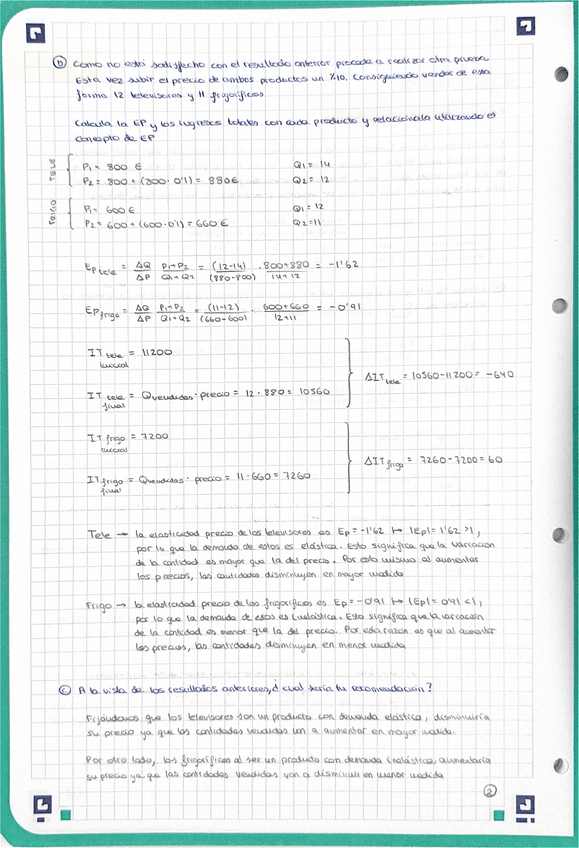 b) Como no está satisfecho con el resultado anterior procede a realizar otra prueba.
Esta vez subir el precio de ambos productos un %10. Consiguiendo vender de esta
forma 12 televisores y 11 frigoríficos
Calcula la EP y los ingresos totales con cada producto y relaciónala utilizando el
concepto de EP
TELE
P1 = 800 € Q1 = 14
P2 = 800 + (800 · 0'1) = 880€ Q2 = 12
FRIGO
P1 = 600€ Q1 = 12
P2 = 600 + (600 · 0'1) = 660 € Q2 = 11
Ep tele = ΔQ/ΔP · P1+P2/Q1+Q2 = (12-14)/(880-800) · 800+880/14+12 = -1'62
Ep frigo = ΔQ/ΔP · P1+P2/Q1+Q2 = (11-12)/(660-600) · 600+660/12+11 = -0'91
IT tele inicial = 11200
IT tele final = Qvendidas · precio = 12 · 880 = 10560
ΔIT tele = 10560 - 11200 = -640
IT frigo inicial = 7200
IT frigo final = Qvendidas · precio = 11 · 660 = 7260
ΔIT frigo = 7260 - 7200 = 60
Tele → la elasticidad precio de los televisores es Ep = -1'62 ↦ |Ep| = 1'62 > 1,
por lo que la demanda de estos es elástica. Esto significa que la variación
de la cantidad es mayor que la del precio. Por esto mismo al aumentar
los precios, las cantidades disminuyen en mayor medida
Frigo → la elasticidad precio de los frigoríficos es Ep = -0'91 ↦ |Ep| = 0'91 < 1,
por lo que la demanda de estos es inelástica. Esto significa que la variación
de la cantidad es menor que la del precio. Por esta razón es que al aumentar
los precios, las cantidades disminuyen en menor medida
c) A la vista de los resultados anteriores, ¿cual sería tu recomendación?
Fijándonos que los televisores son un producto con demanda elástica, disminuiría
su precio ya que las cantidades vendidas van a aumentar en mayor medida.
Por otro lado, los frigoríficos al ser un producto con demanda inelástica, aumentaría
su precio ya que las cantidades vendidas van a disminuir en menor medida
2